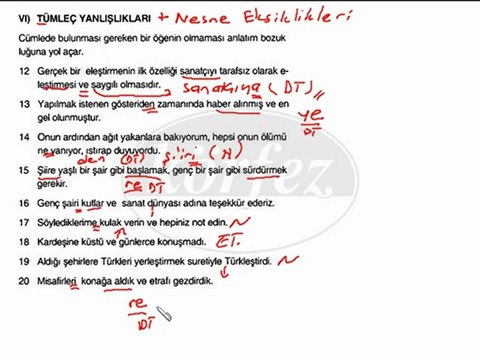 VI) TÜMLEÇ YANLIŞLIKLARI + Nesne Eksiklikleri
Cümlede bulunması gereken bir öğenin olmaması anlatım bozuk
luğuna yol açar.
12 Gerçek bir eleştirmenin ilk özelliği sanatçıyı tarafsız olarak e-
leştirmesi ve saygılı olmasıdır. sanatçıya (DT)
13 Yapılmak istenen gösteriden zamanında haber alınmış ve en
gel olunmuştur. ye
DT
14 Onun ardından ağıt yakanlara bakıyorum, hepsi onun ölümü
ne yanıyor, ıstırap duyuyordu.
den (DT) şiiri (N)
15 Şiire yaşlı bir şair gibi başlamak, genç bir şair gibi sürdürmek
gerekir. re DT
16 Genç şairi kutlar ve sanat dünyası adına teşekkür ederiz.
17 Söylediklerime kulak verin ve hepiniz not edin. N
18 Kardeşine küstü ve günlerce konuşmadı. ET.
19 Aldığı şehirlere Türkleri yerleştirmek suretiyle Türkleştirdi. N
20 Misafirleri konağa aldık ve etrafı gezdirdik.
re
DT
körfez